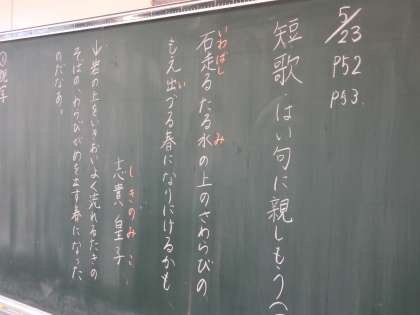 5/23
P52
P53.
短歌・はい句に親しもう(
いわばし
み
石走るたる水の上のさわらびの
い
もえ出づる春になりにけるかも
しきのみこ
志貴皇子
↓岩の上をいきおいよく流れるたきの
そばの、わらびがめを出す春になった
のだなあ。